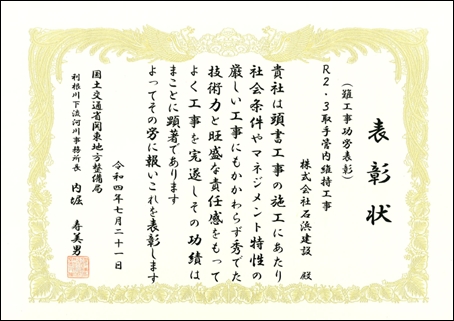 表彰状
(難工事功労表彰)
R2・3取手管内維持工事
株式会社石浜建設 殿
貴社は頭書工事の施工にあたり
社会条件やマネジメント特性の
厳しい工事にもかかわらず秀でた
技術力と旺盛な責任感をもって
よく工事を完遂しその功績は
まことに顕著であります
よってその労に報いこれを表彰します
令和四年七月二十一日
国土交通省関東地方整備局
利根川下流河川事務所長 内堀 寿美男